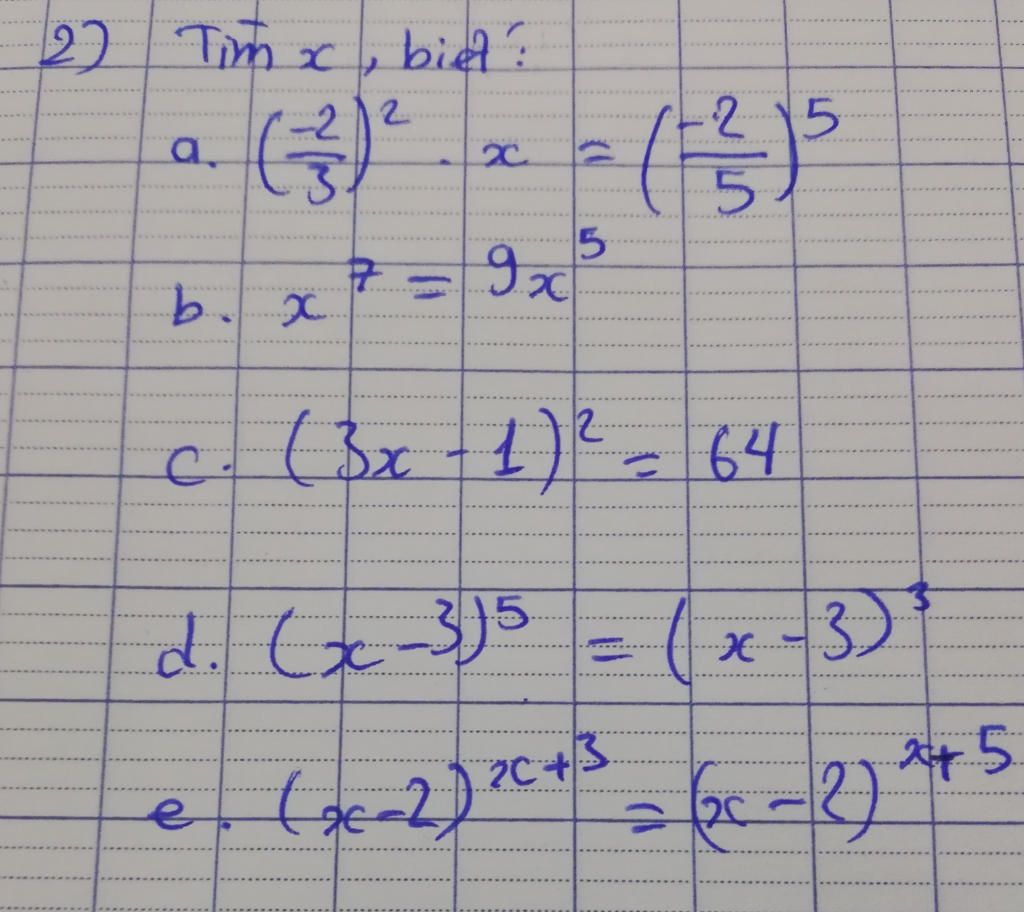 2) Tìm x, biết:
a. (-2/3)² . x = (-2/5)⁵
b. x⁷ = 9x⁵
c. (3x - 1)² = 64
d. (x - 3)⁵ = (x - 3)³
e. (x - 2)ˣ⁺³ = (x - 2)ˣ⁺⁵